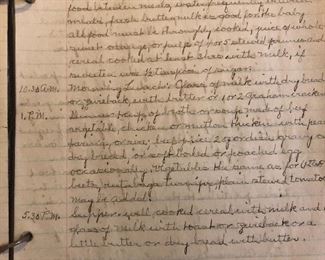 food between meals, water frequently between
meals, fresh buttermilk is good for the baby
all food must be thoroughly cooked, juice of whole
sweet orange, or pulp of 1 or 2 stewed prunes and
cereal cooked at least 3 hrs with milk, if
sweeten use ½ teaspoon of sugar.
10.30 A.M. Morning Lunch: Glass of milk with dry bread
or zwieback with butter or 1 or 2 Graham crackers
1. P.M. Dinner: soup of broth or soup made of beef
vegetable, chicken or mutton thicken with peas
farina, or rice; beef juice 2 or gravy on
dry bread, or soft boiled or poached egg
occasionally. Vegetables the same as for
beets, rutabaga turnips, plain stewed tomatoes
may be added.
5.30 P.M. Supper. well cooked cereal with milk and a
glass of milk with toast or zwieback or a
little butter or dry bread with butter.